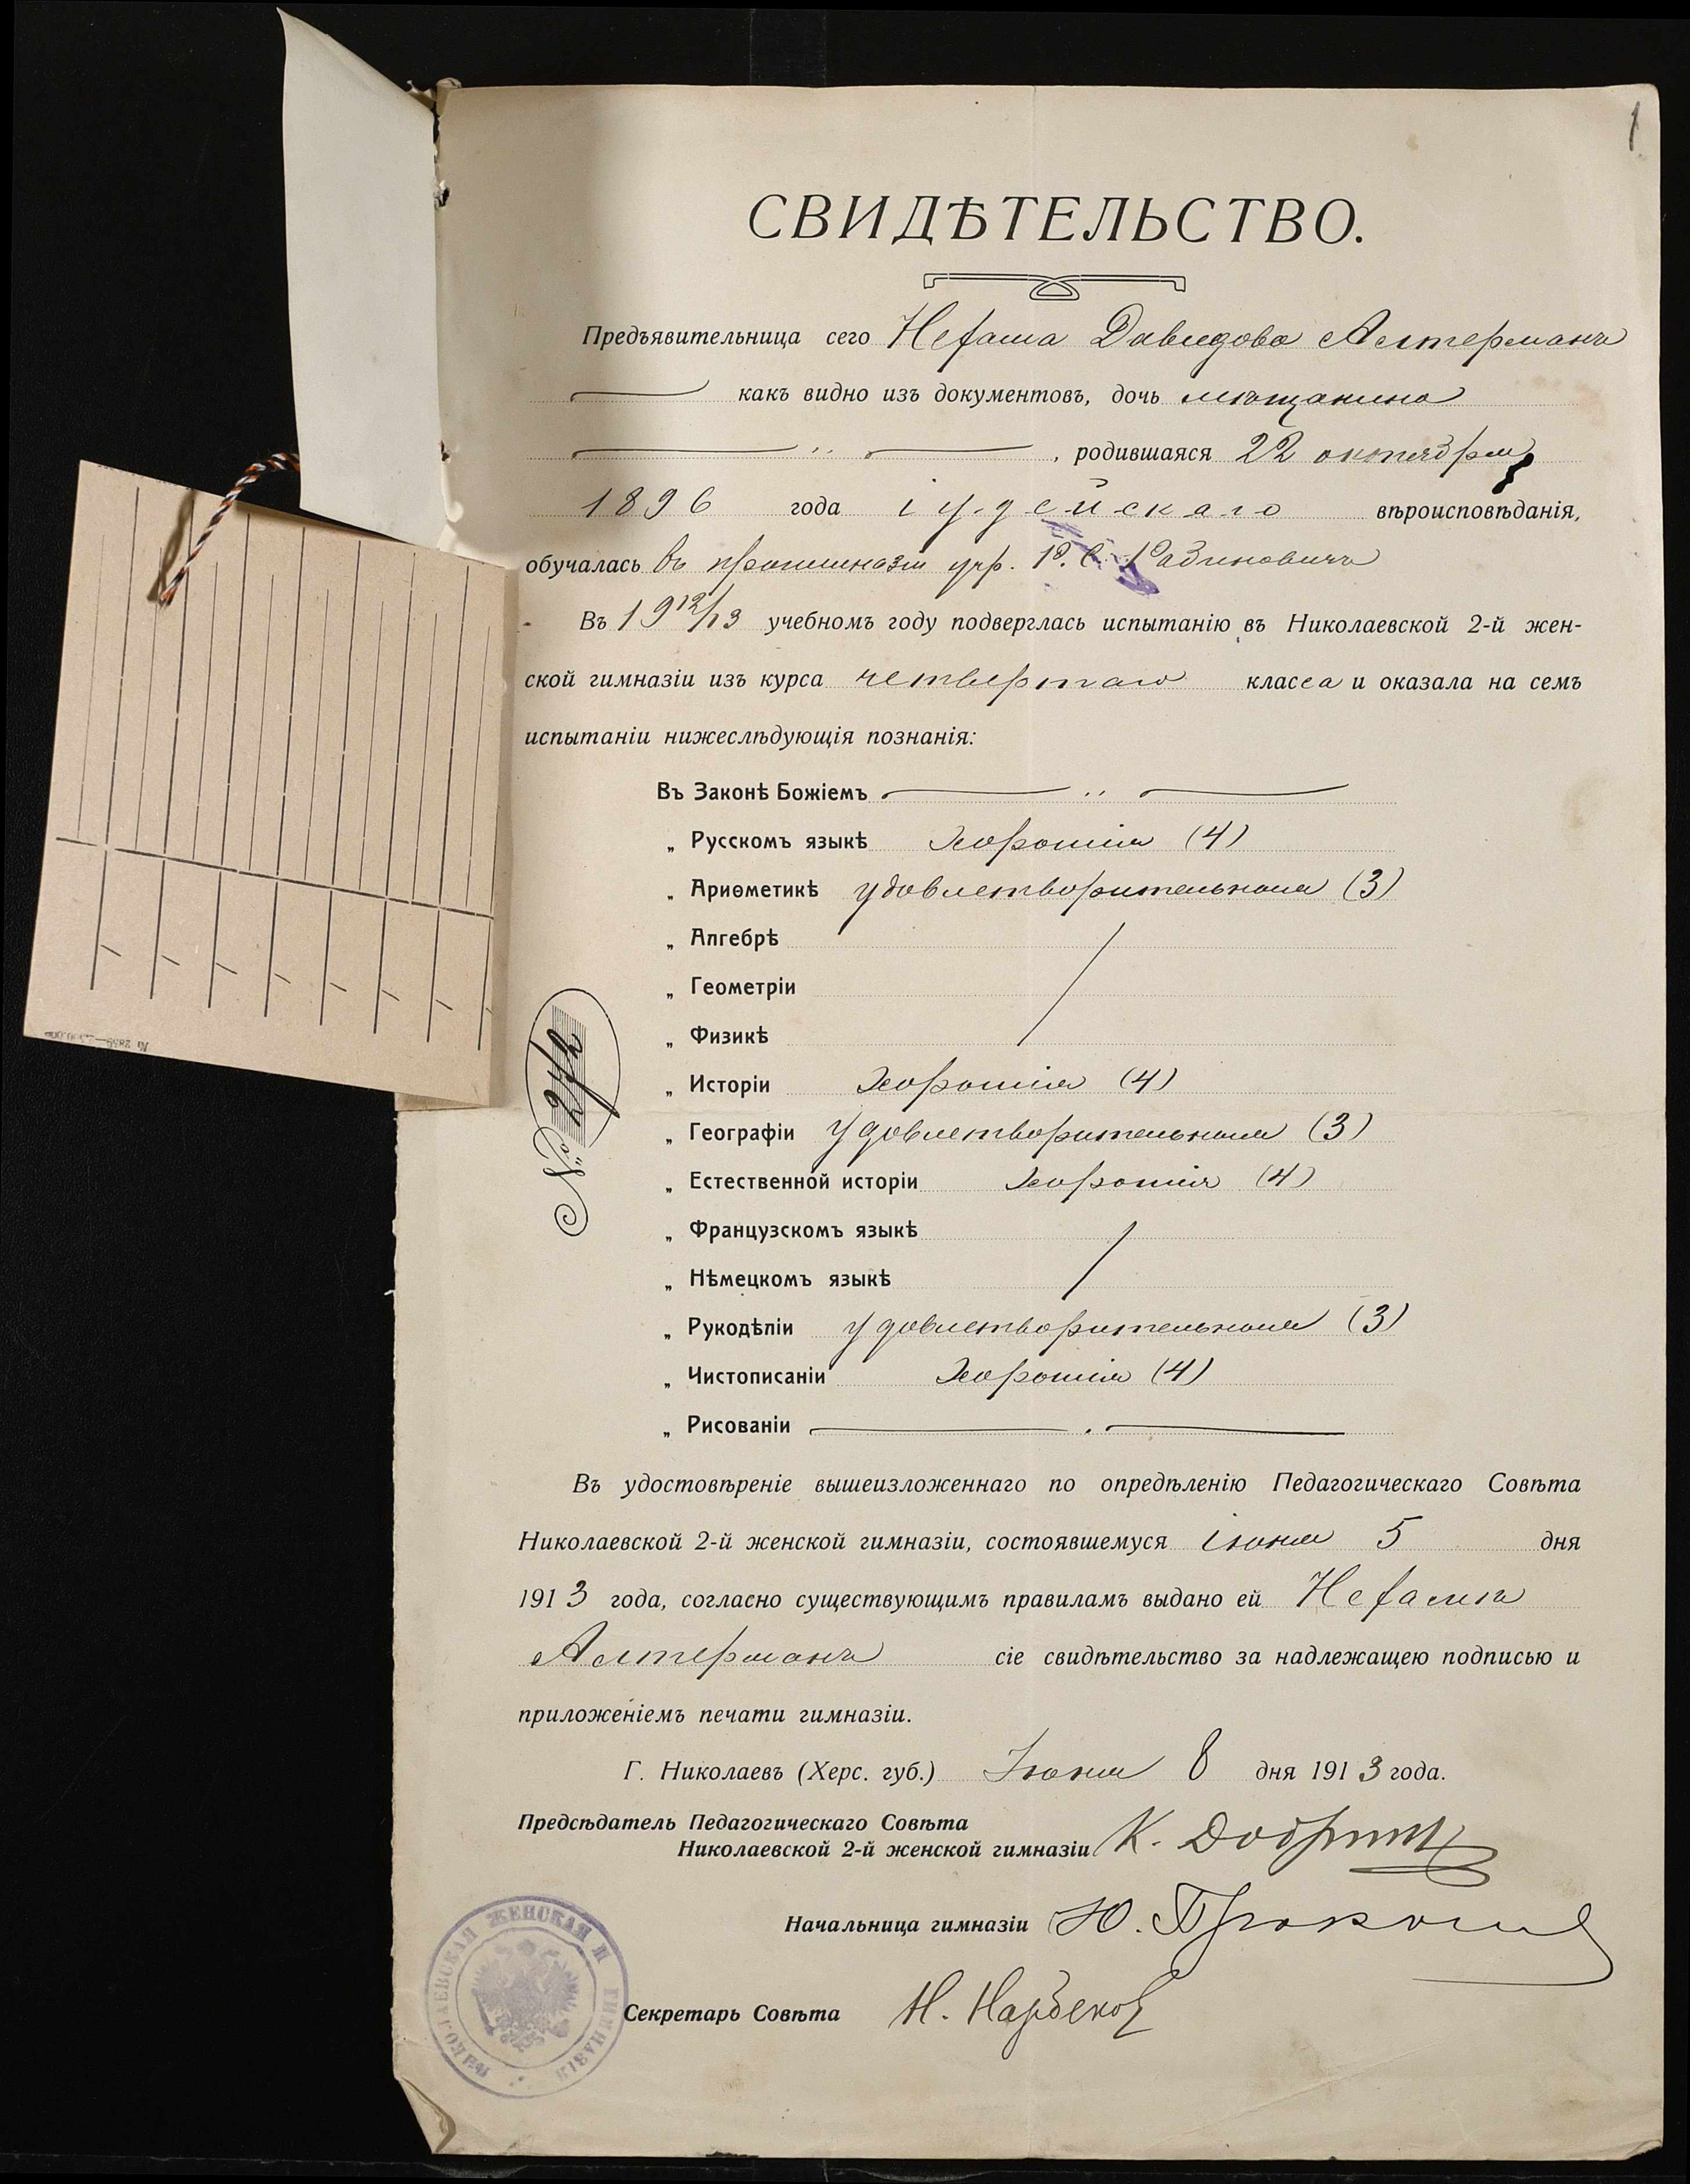 1
СВИДѢТЕЛЬСТВО.
Предъявительница сего Нехама Давидова Альтерманъ
какъ видно изъ документовъ, дочь мѣщанина
„ , родившаяся 22 октября
1896 года іудейскаго вѣроисповѣданія,
обучалась въ прогимназіи учр. Р. С. Рабиновичъ
Въ 1912/13 учебномъ году подверглась испытанію въ Николаевской 2-й жен-
ской гимназіи изъ курса четвертаго класса и оказала на семъ
испытаніи нижеслѣдующія познанія:
Въ Законѣ Божіемъ „
„ Русскомъ языкѣ хорошія (4)
„ Ариѳметикѣ удовлетворительныя (3)
„ Алгебрѣ
„ Геометріи
„ Физикѣ
„ Исторіи хорошія (4)
„ Географіи удовлетворительныя (3)
„ Естественной исторіи хорошія (4)
„ Французскомъ языкѣ
„ Нѣмецкомъ языкѣ
„ Рукодѣліи удовлетворительныя (3)
„ Чистописаніи хорошія (4)
„ Рисованіи
№ 272
Въ удостовѣреніе вышеизложеннаго по опредѣленію Педагогическаго Совѣта
Николаевской 2-й женской гимназіи, состоявшемуся іюня 5 дня
1913 года, согласно существующимъ правиламъ выдано ей Нехамѣ
Альтерманъ сіе свидѣтельство за надлежащею подписью и
приложеніемъ печати гимназіи.
Г. Николаевъ (Херс. губ.) Іюня 8 дня 1913 года.
Предсѣдатель Педагогическаго Совѣта
Николаевской 2-й женской гимназіи К.
Начальница гимназіи Ю.
Секретарь Совѣта Н. Нарбеков
НИКОЛАЕВСКАЯ ЖЕНСКАЯ II ГИМНАЗІЯ